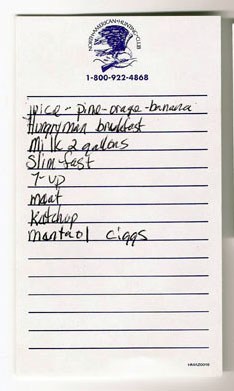 NORTH•AMERICAN•HUNTING•CLUB
1-800-922-4868
juice - pine-orage-banana
Hungryman breakfast
Milk 2 gallons
Slim-fast
7-up
meat
Ketchup
mantaol ciggs